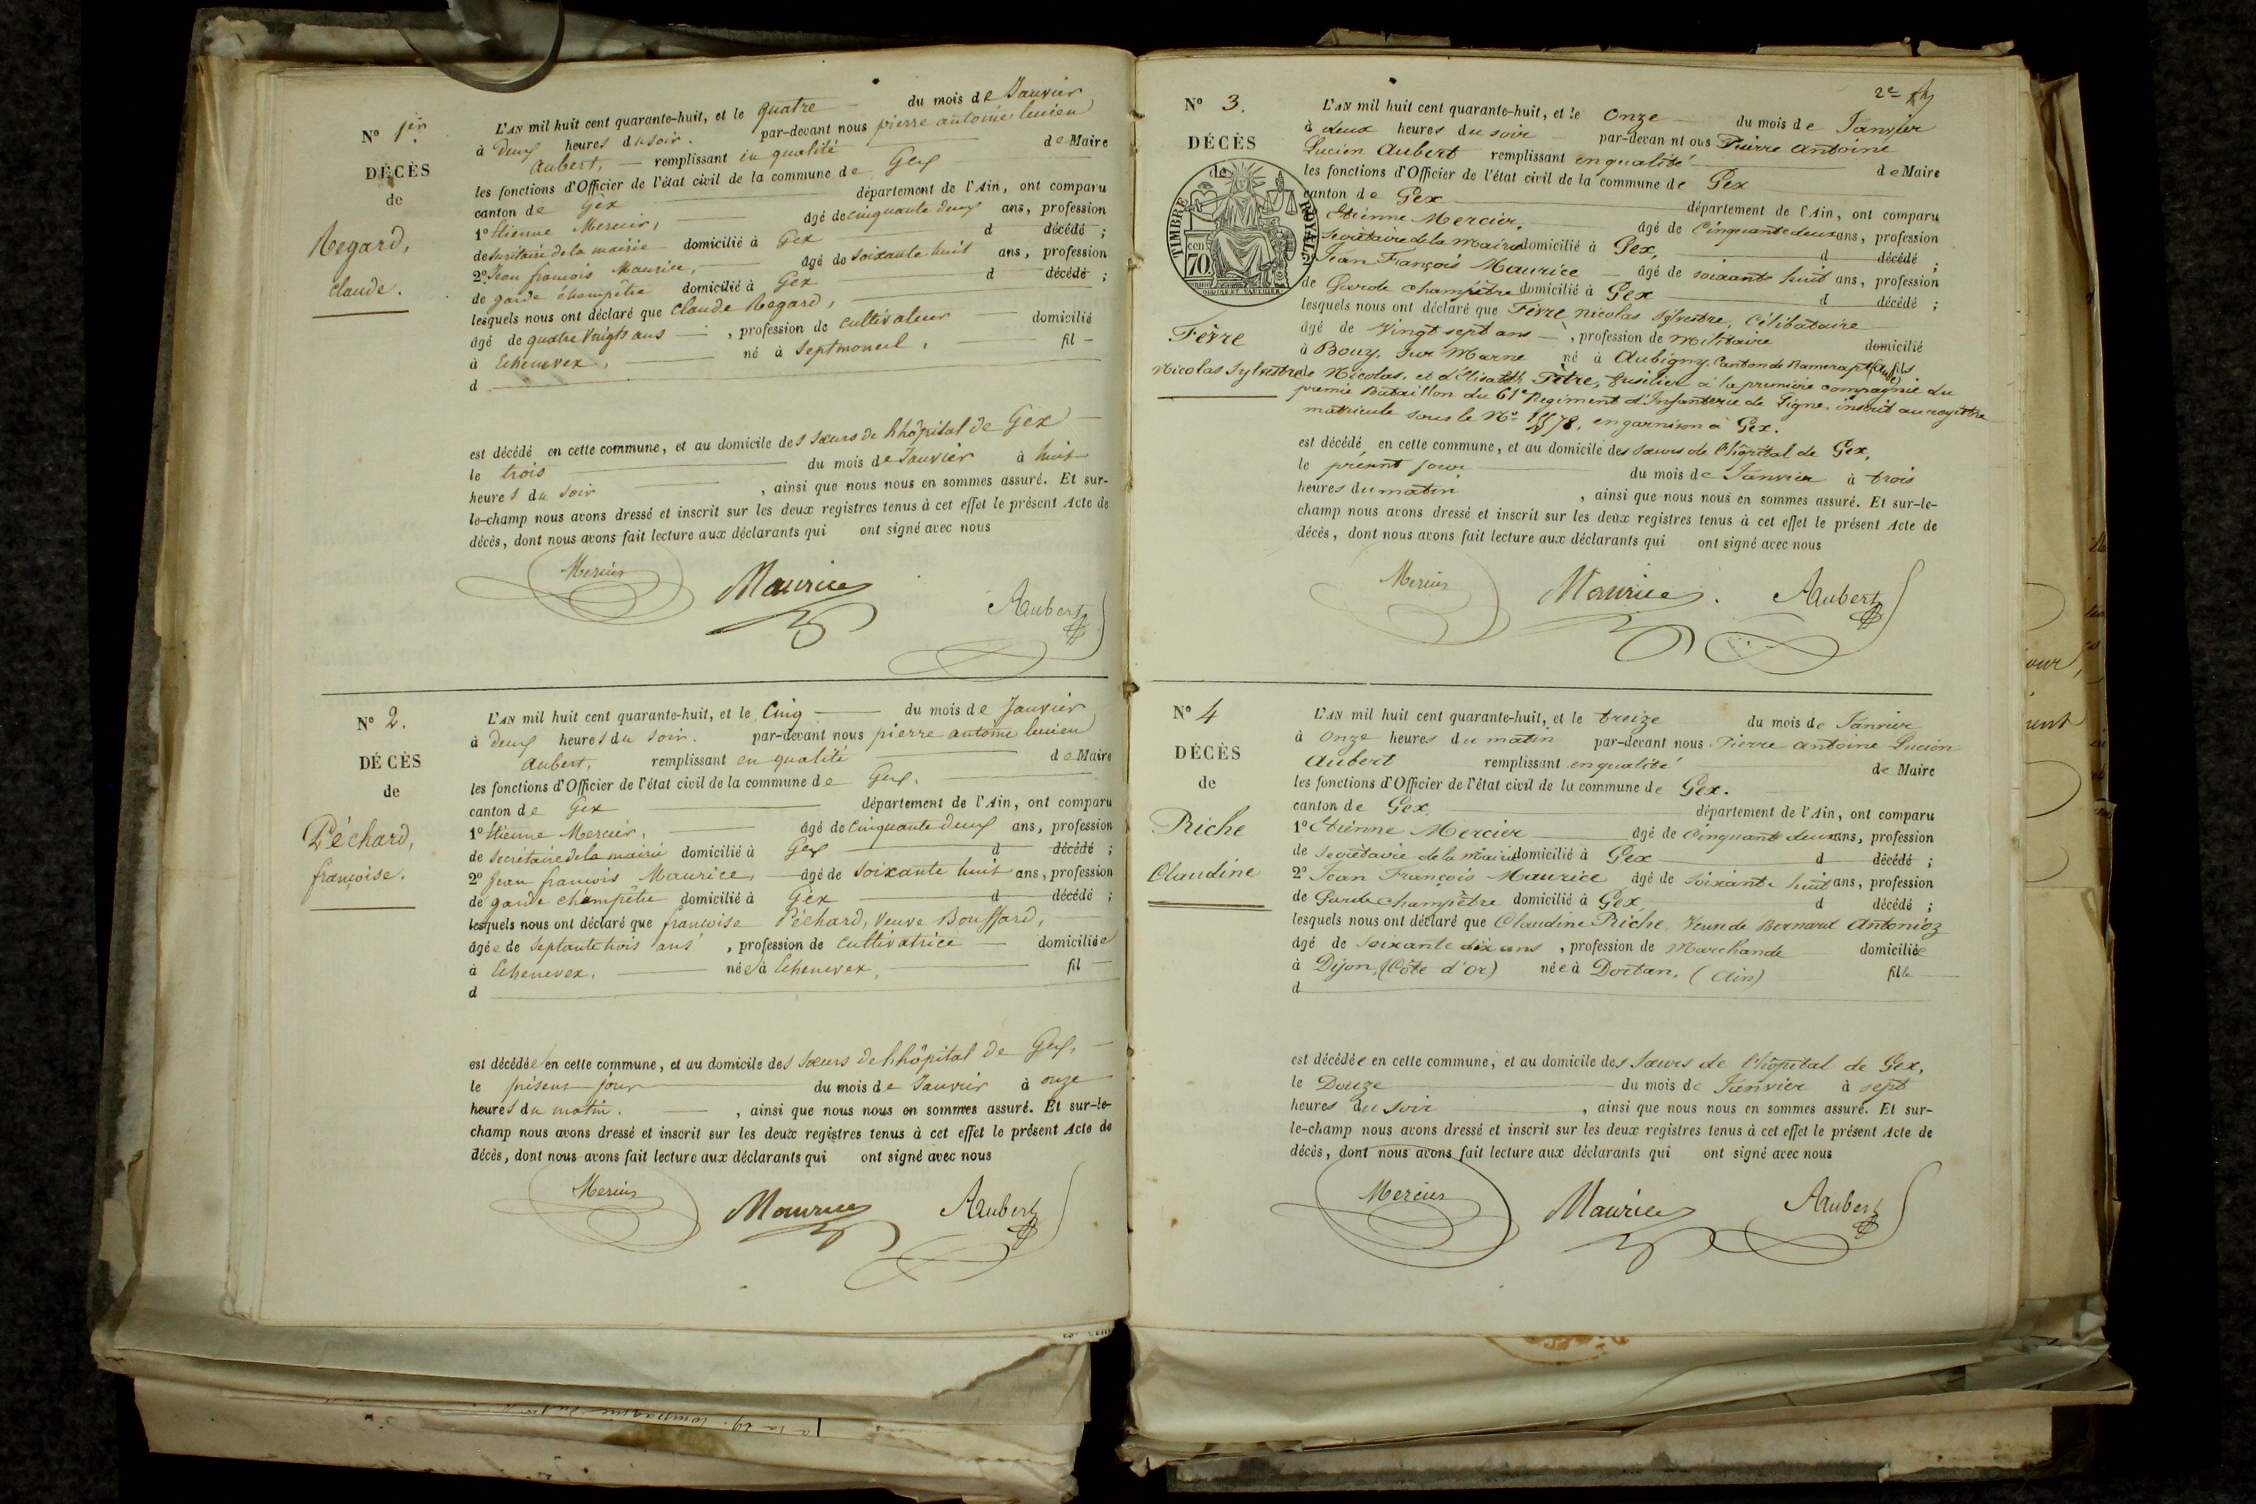 Nº 1er
DÉCÈS
de
Regard,
claude.
L'AN mil huit cent quarante-huit, et le quatre du mois de Janvier
à deux heures du soir. par-devant nous pierre antoine lucien
aubert, remplissant en qualité de Maire
les fonctions d'Officier de l'état civil de la commune de Gex
canton de Gex département de l'Ain, ont comparu
1º Etienne Mercier, âgé de cinquante deux ans, profession
de secrétaire de la mairie domicilié à Gex d décédé ;
2º Jean françois Maurice, âgé de soixante huit ans, profession
de garde champêtre domicilié à Gex d décédé ;
lesquels nous ont déclaré que claude Regard,
âgé de quatre vingts ans , profession de cultivateur domicilié
à Echenevex, né à Septmoncel, fil
d
est décédé en cette commune, et au domicile des sœurs de l'hôpital de Gex
le trois du mois de Janvier à huit
heures du soir , ainsi que nous nous en sommes assuré. Et sur-
le-champ nous avons dressé et inscrit sur les deux registres tenus à cet effet le présent Acte de
décès, dont nous avons fait lecture aux déclarants qui ont signé avec nous
Mercier Maurice Aubert
Nº 2.
DÉCÈS
de
Péchard,
françoise.
L'AN mil huit cent quarante-huit, et le Cinq du mois de Janvier
à deux heures du soir. par-devant nous pierre antoine lucien
aubert, remplissant en qualité de Maire
les fonctions d'Officier de l'état civil de la commune de Gex.
canton de Gex département de l'Ain, ont comparu
1º Etienne Mercier, âgé de cinquante deux ans, profession
de secrétaire de la mairie domicilié à Gex d décédé ;
2º Jean françois Maurice, âgé de soixante huit ans, profession
de garde champêtre domicilié à Gex d décédé ;
lesquels nous ont déclaré que françoise Péchard, veuve Bouffard,
âgée de septante trois ans , profession de cultivatrice domiciliée
à Echenevex, née à Echenevex, fil
d
est décédée en cette commune, et au domicile des sœurs de l'hôpital de Gex,
le présent jour du mois de Janvier à onze
heures du matin. , ainsi que nous nous en sommes assuré. Et sur-le-
champ nous avons dressé et inscrit sur les deux registres tenus à cet effet le présent Acte de
décès, dont nous avons fait lecture aux déclarants qui ont signé avec nous
Mercier Maurice Aubert
2e
Nº 3.
DÉCÈS
de
TIMBRE ROYAL
cen 70
Fèvre
Nicolas Sylvestre
L'AN mil huit cent quarante-huit, et le Onze du mois de Janvier
à deux heures du soir par-devan nt ous Pierre Antoine
Lucien Aubert remplissant en qualité de Maire
les fonctions d'Officier de l'état civil de la commune de Gex
canton de Gex département de l'Ain, ont comparu
Etienne Mercier, âgé de Cinquante deux ans, profession
Secrétaire de la Mairie domicilié à Gex, d décédé ;
Jean François Maurice âgé de soixante huit ans, profession
de Garde champêtre domicilié à Gex d décédé ;
lesquels nous ont déclaré que Fèvre nicolas Sylvestre, Célibataire
âgé de Vingt sept ans , profession de Militaire domicilié
à Bouy, sur Marne né à Aubigny, Canton de Ramerupt (Aube) fils
de Nicolas, et d'Elisabeth Pètre, fusilier à la première compagnie du
premier Bataillon du 61e Régiment d'Infanterie de Ligne, inscrit au registre
matricule sous le Nº en garnison à Gex.
est décédé en cette commune, et au domicile des sœurs de l'hôpital de Gex,
le présent jour du mois de Janvier à trois
heures du matin , ainsi que nous nous en sommes assuré. Et sur-le-
champ nous avons dressé et inscrit sur les deux registres tenus à cet effet le présent Acte de
décès, dont nous avons fait lecture aux déclarants qui ont signé avec nous
Mercier Maurice Aubert
Nº 4
DÉCÈS
de
Riche
Claudine
L'AN mil huit cent quarante-huit, et le treize du mois de Janvier
à Onze heures du matin par-devant nous Pierre Antoine Lucien
Aubert remplissant en qualité de Maire
les fonctions d'Officier de l'état civil de la commune de Gex.
canton de Gex département de l'Ain, ont comparu
1º Etienne Mercier âgé de Cinquante deux ans, profession
de secrétaire de la mairie domicilié à Gex d décédé ;
2º Jean François Maurice âgé de soixante huit ans, profession
de Garde champêtre domicilié à Gex d décédé ;
lesquels nous ont déclaré que Claudine Riche, Veuve de Bernard Antonioz
âgé de soixante dix ans , profession de Marchande domiciliée
à Dijon, (Côte d'Or) née à Dortan, (Ain) fille
d
est décédée en cette commune, et au domicile des sœurs de l'hôpital de Gex,
le Douze du mois de Janvier à sept
heures du soir , ainsi que nous nous en sommes assuré. Et sur-
le-champ nous avons dressé et inscrit sur les deux registres tenus à cet effet le présent Acte de
décès, dont nous avons fait lecture aux déclarants qui ont signé avec nous
Mercier Maurice Aubert